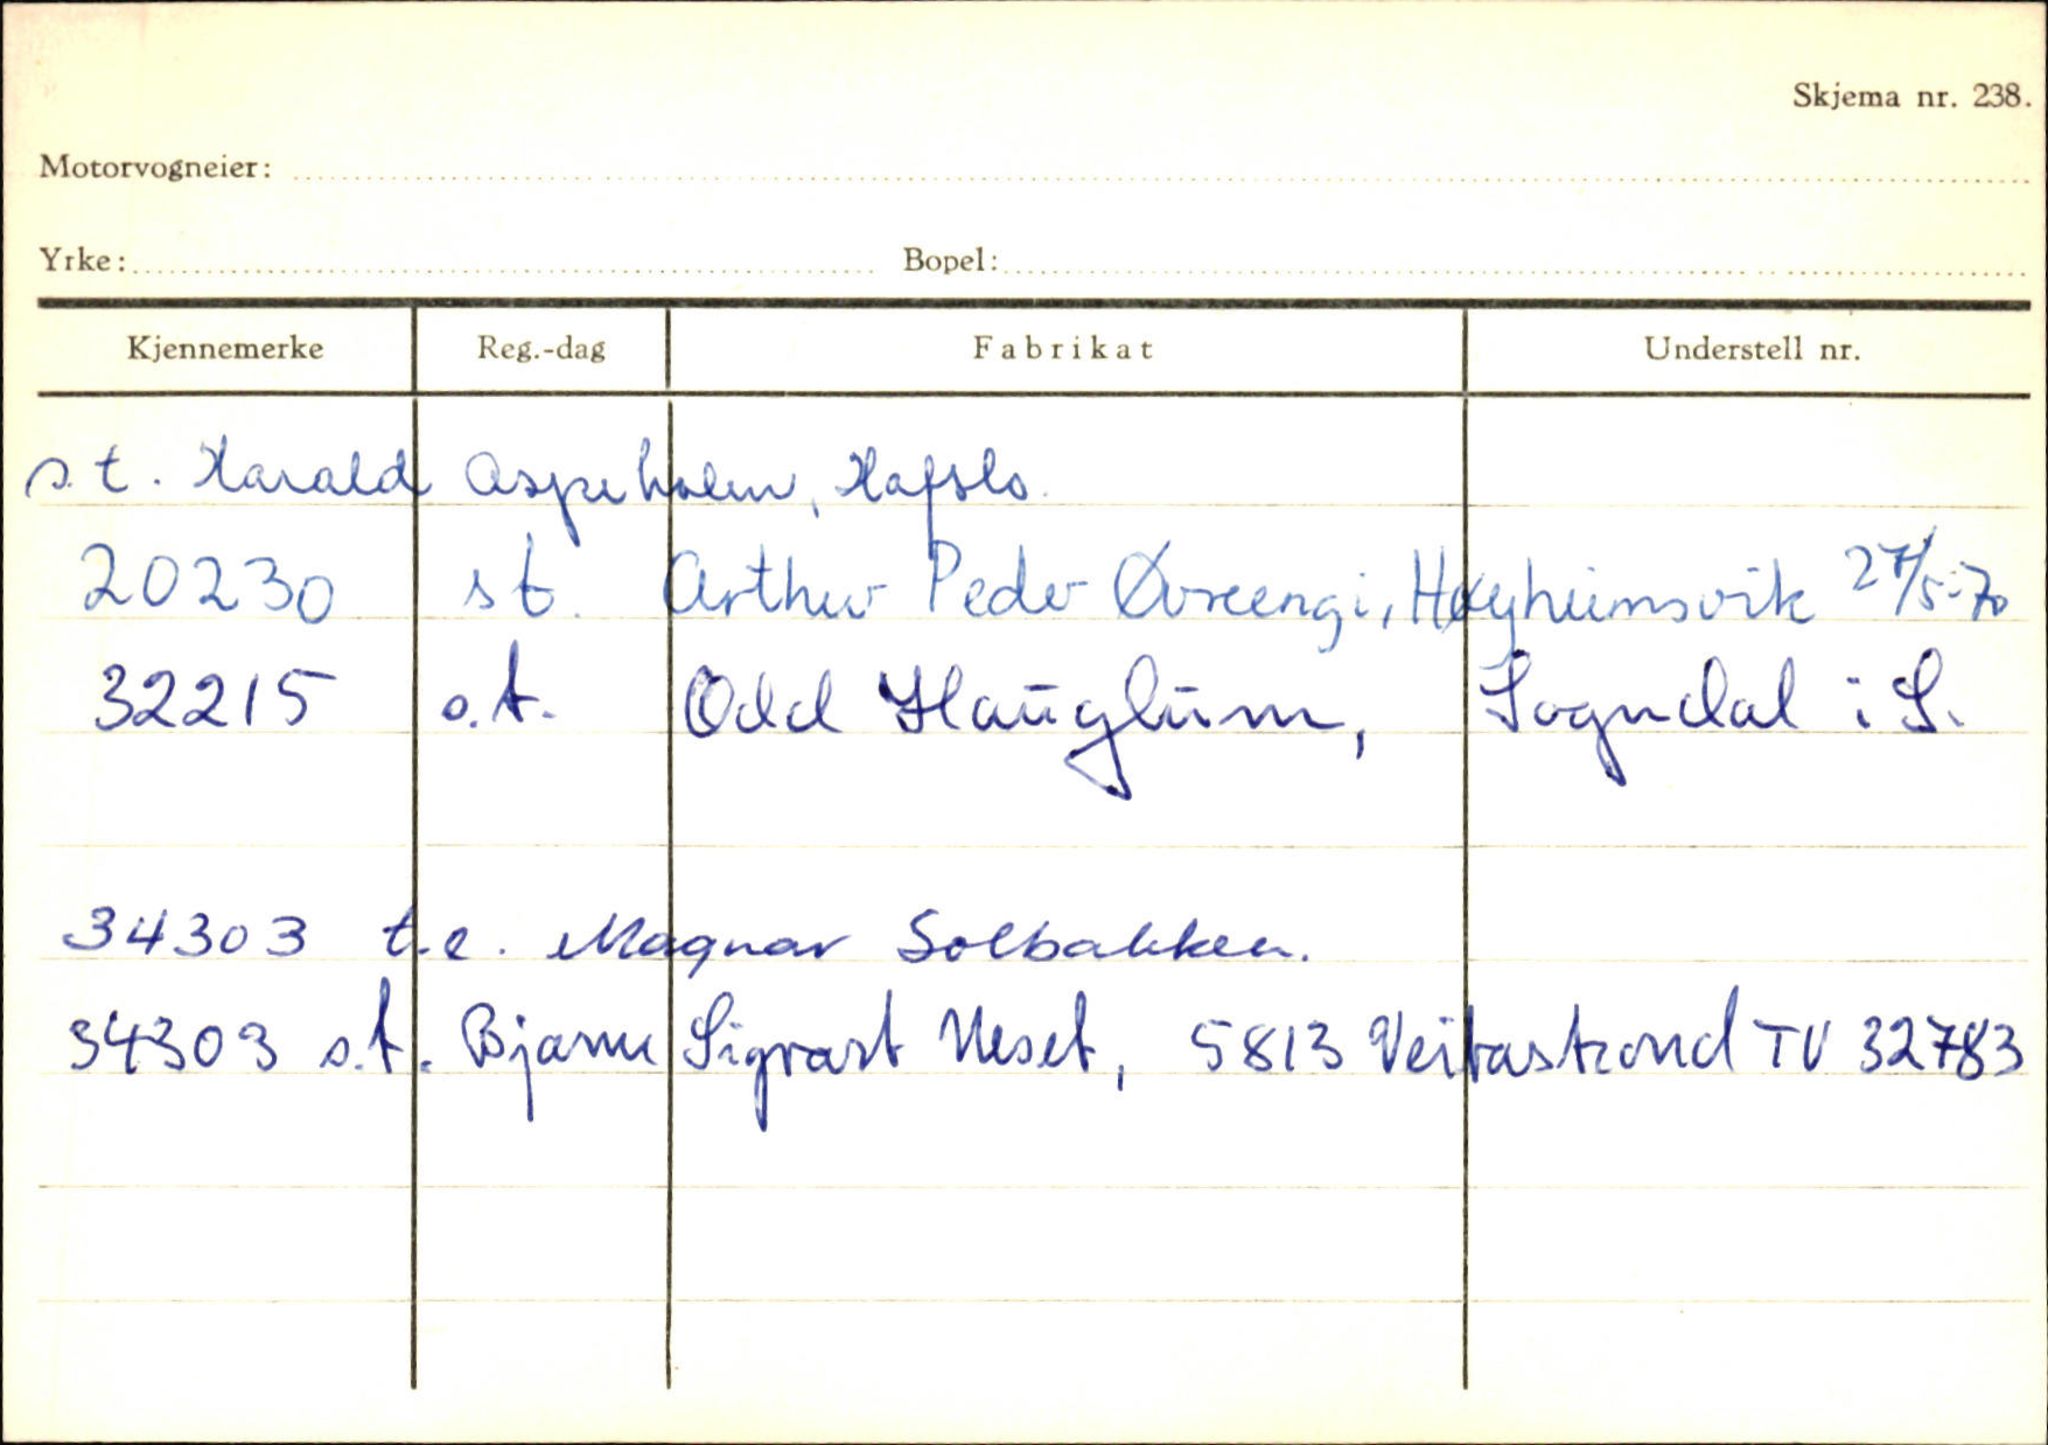 Skjema nr. 238.
Motorvogneier:
Yrke: Bopel:
Kjennemerke Reg.-dag Fabrikat Understell nr.
s.t. Harald Aspeholm, Hafslo.
20230 st. Arthur Peder Øvreengi, Høyheimsvik 27/5-70
32215 s.t. Odd Hauglum, Sogndal i S.
34303 t.e. Magnar Solbakken.
34303 s.t. Bjarne Sigvart Neset, 5813 Veitastrond TV 32783